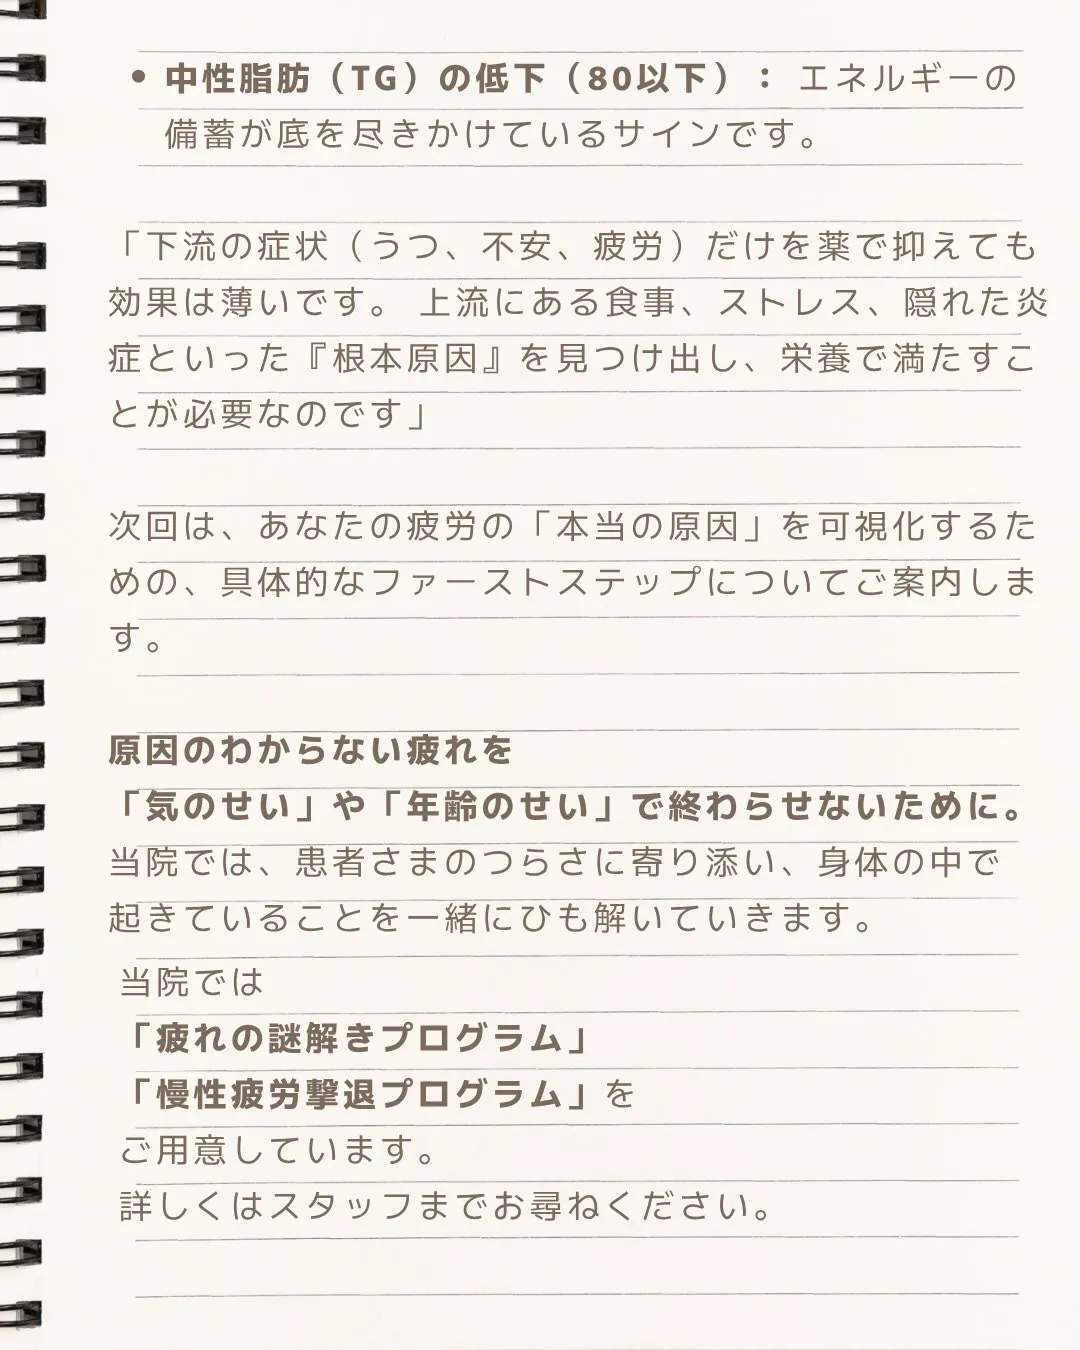 • 中性脂肪（TG）の低下（80以下）： エネルギーの
備蓄が底を尽きかけているサインです。
「下流の症状（うつ、不安、疲労）だけを薬で抑えても
効果は薄いです。 上流にある食事、ストレス、隠れた炎
症といった『根本原因』を見つけ出し、栄養で満たすこ
とが必要なのです」
次回は、あなたの疲労の「本当の原因」を可視化するた
めの、具体的なファーストステップについてご案内しま
す。
原因のわからない疲れを
「気のせい」や「年齢のせい」で終わらせないために。
当院では、患者さまのつらさに寄り添い、身体の中で
起きていることを一緒にひも解いていきます。
当院では
「疲れの謎解きプログラム」
「慢性疲労撃退プログラム」を
ご用意しています。
詳しくはスタッフまでお尋ねください。